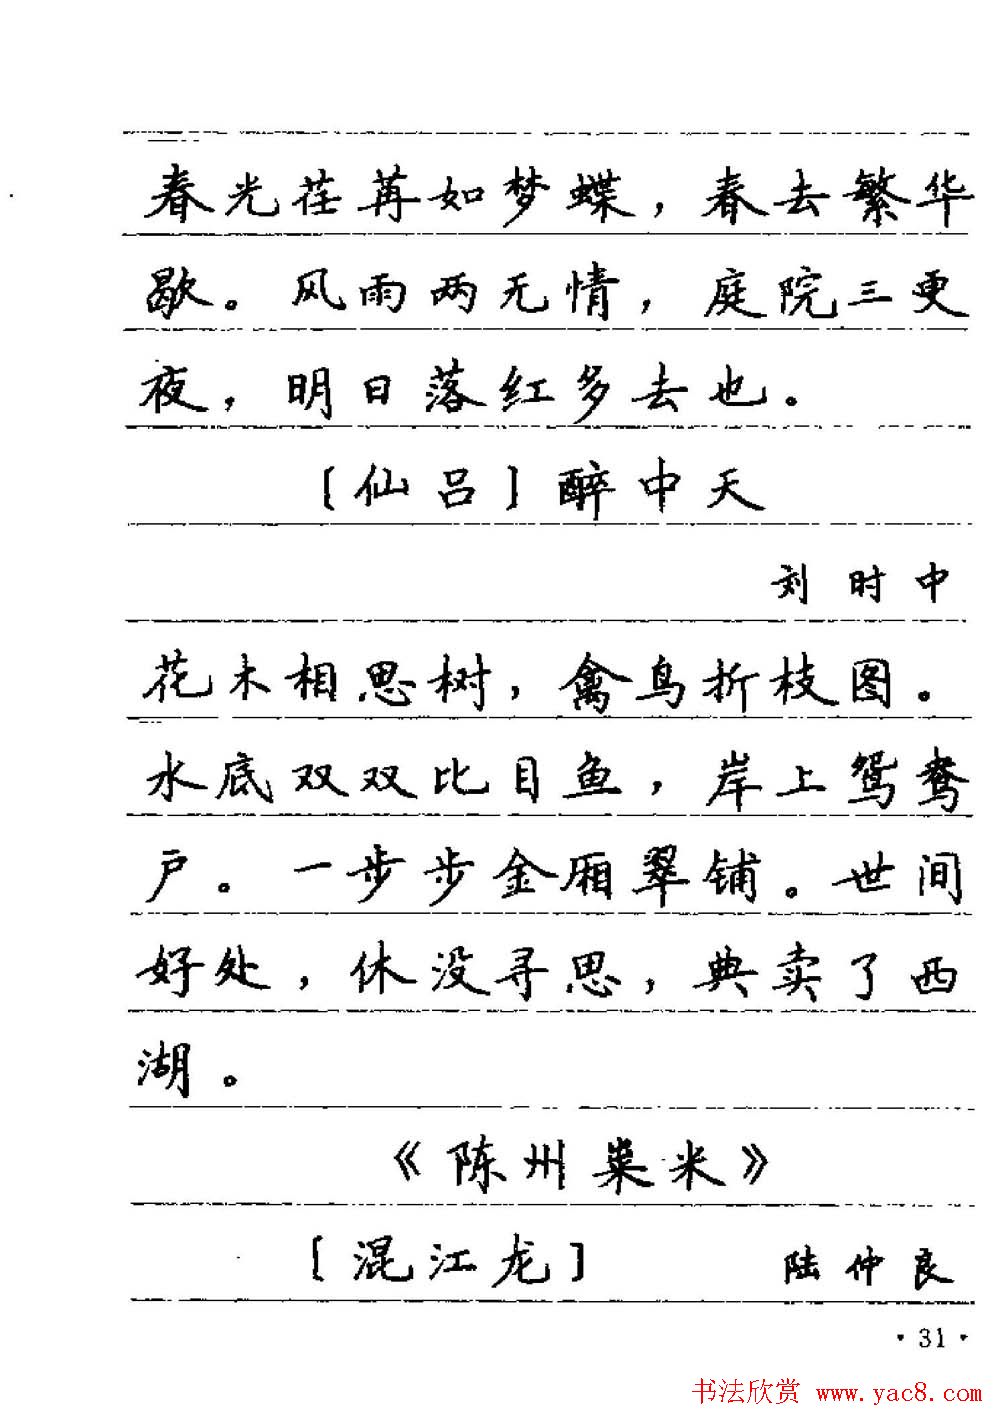 春光荏苒如梦蝶，春去繁华
歇。风雨两无情，庭院三更
夜，明日落红多去也。
［仙吕］醉中天
刘时中
花木相思树，禽鸟折枝图。
水底双双比目鱼，岸上鸳鸯
户。一步步金厢翠铺。世间
好处，休没寻思，典卖了西
湖。
《陈州粜米》
［混江龙］ 陆仲良
·31·
书法欣赏 www.yac8.com